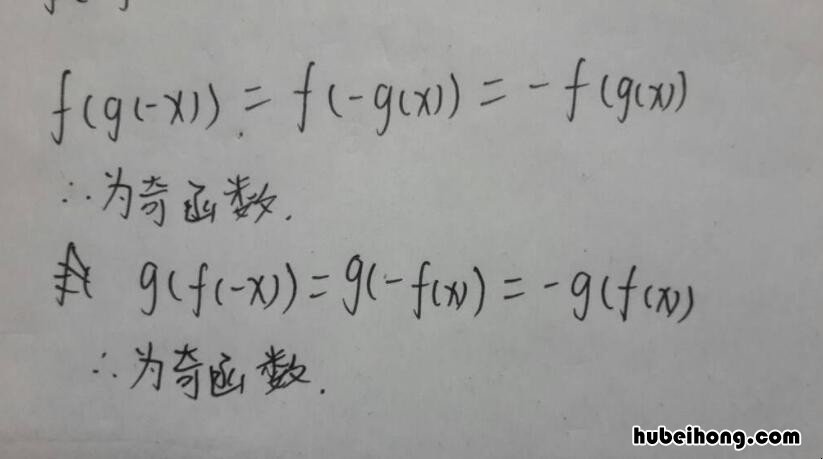 f(g(-x)) = f(-g(x)) = -f(g(x))
∴为奇函数.
g(f(-x)) = g(-f(x)) = -g(f(x))
∴为奇函数.
hubeihong.com